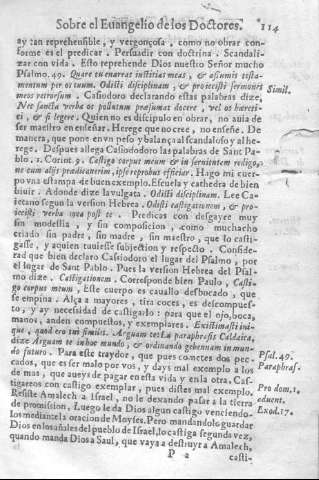 Sobre el Euangelio de los Doctores. 114
ay tan reprehensible, y vergonçosa, como no obrar con-
forme es el predicar. Persuadir con doctrina. Scandali-
zar con vida. Esto reprehende Dios nuestro Señor mucho
Psalmo. 49. Quare tu enarras iustitias meas, & assumis testa-
mentum per os tuum. Odisti disciplinam, & proiecisti sermones
meos retrorsum. Casiodoro declarando estas palabras dize,
Simil.
Nec sancta verba os pollutum præsumat docere, vel os hæreti-
ci, & si legere. Quien no es discipulo en obrar, no auia de
ser maestro en enseñar. Herege que no cree, no enseñe. De
manera, que pone en vn peso y balança al scandaloso y al he-
rege. Despues allega Casiodoro las palabras de Sant Pa-
blo. 1. Corint. 9. Castigo corpus meum & in seruitutem redigo,
ne cum alijs prædicauerim, ipse reprobus efficiar. Hago mi cuer-
po vna estampa de buen exemplo. Escuela y cathedra de bien
biuir. Adonde dize la vulgata. Odisti disciplinam. Lee Ca-
ietano segun la version Hebrea. Odisti castigationem, & pro-
iecisti verba mea post te. Predicas con desgayre muy
sin modestia, y sin composicion, como muchacho
criado sin padre, sin madre, sin maestro, que lo casti-
gasse, y aquien tuuiesse subjection y respecto. Conside-
rad que bien declaro Casiodoro el lugar del Psalmo, por
el lugar de Sant Pablo. Pues la version Hebrea del Psal-
mo dize. Castigationem. Corresponde bien Paulo, Casti-
go corpus meum. Este cuerpo es cauallo desbocado, que
se empina. Alça a mayores, tira coces, es descompues-
to, y ay necesidad de castigarlo: para que el ojo, boca,
manos, anden compuestos, y exemplares. Existimasti ini-
que, quod ero tui similis. Arguam te. La paraphrasis Caldaica,
dize Arguam te in hoc mundo, & ordinando gehennam in mun-
do futuro. Para este traydor, que pues cometes dos pec-
Psal. 49.
cados, que es ser malo por vos, y days mal exemplo a los
Paraphras.
de mas, que aueys de pagar en esta vida y en la otra. Cas-
tigareos con castigo exemplar, pues distes mal exemplo.
Pro dom. 1,
Resiste Amalech a Israel, no le dexando pasar a la tierra
aduent.
de promission, Luego le da Dios algun castigo venciendo-
Exod. 17.
los mediante la oracion de Moyses. Pero mandandolo guardar
Dios en los años del pueblo de Israel, lo castiga segunda vez,
quando manda Dios a Saul, que vaya a destruyr a Amalech,
P 2 casti-